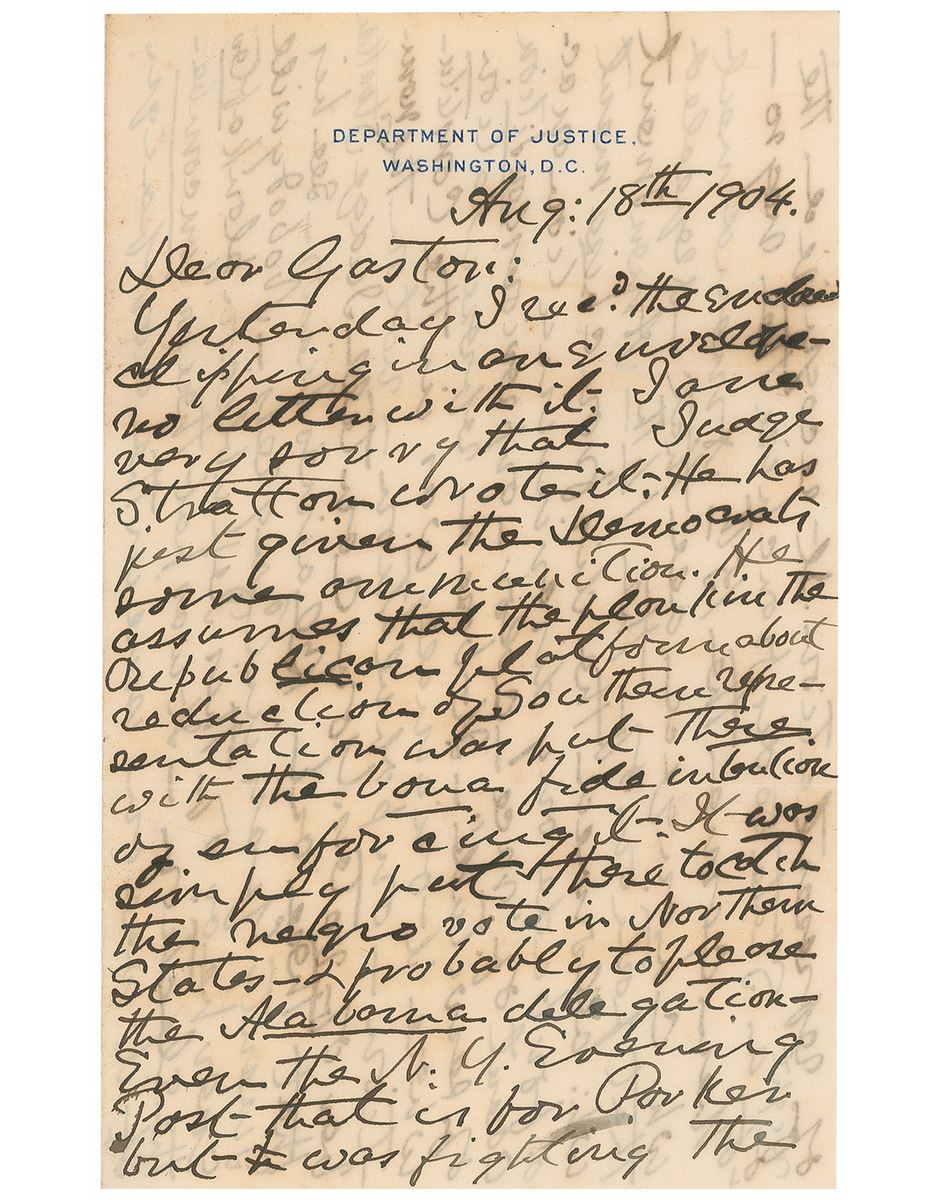 DEPARTMENT OF JUSTICE,
WASHINGTON, D.C.
Aug: 18th 1904.
Dear Gaston:
Yesterday I rec'd. the enclosed
clipping in an envelope-
no letter with it. I am
very sorry that Judge
Stratton wrote it. He has
just given the Democrats
some ammunition. He
assumes that the plank in the
Republican platform about
reduction of Southern repre-
sentation was put there
with the bona fide intention
of enforcing it. It was
simply put there to catch
the negro vote in Northern
States - & probably to please
the Alabama delegation -
Even the N. Y. Evening
Post that is for Parker
but was fighting the